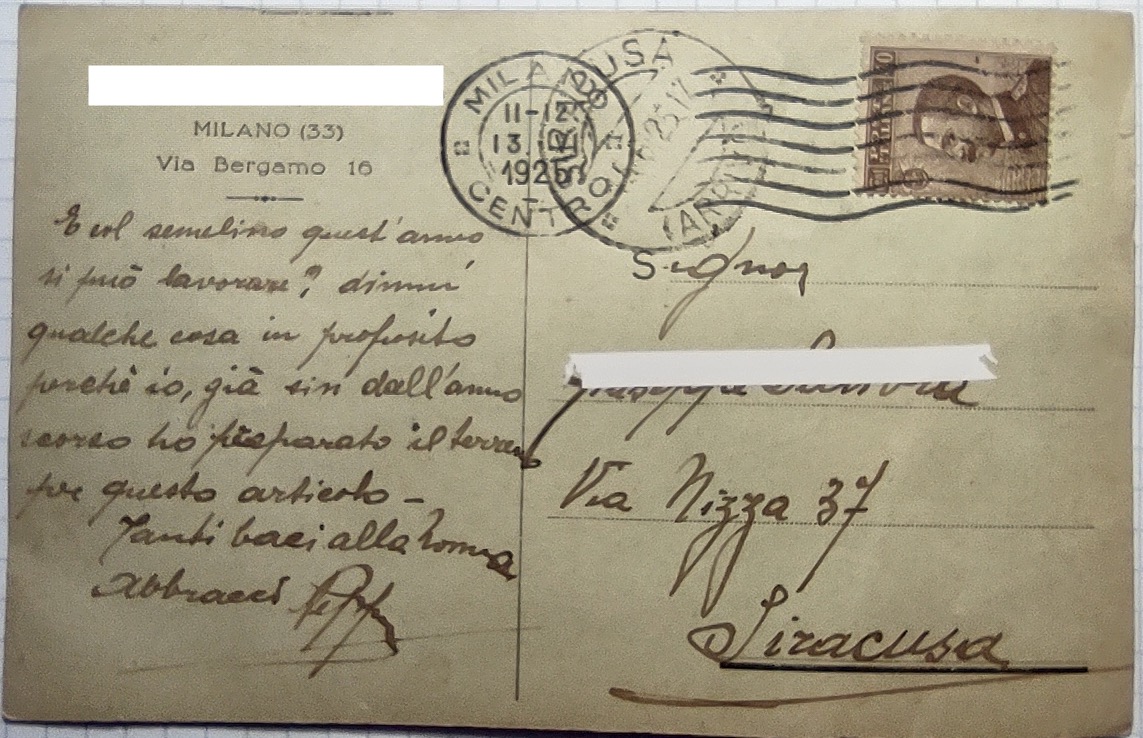 MILANO (33)
Via Bergamo 16
E col semelino quest'anno
si può lavorare? dimmi
qualche cosa in proposito
perchè io, già sin dall'anno
scorso ho preparato il terreno
per questo articolo -
Tanti baci alla
Abbracci
MILANO
11-12
13.
1925
CENTRO
SIRACUSA
Signor
Via Nizza 37
Siracusa